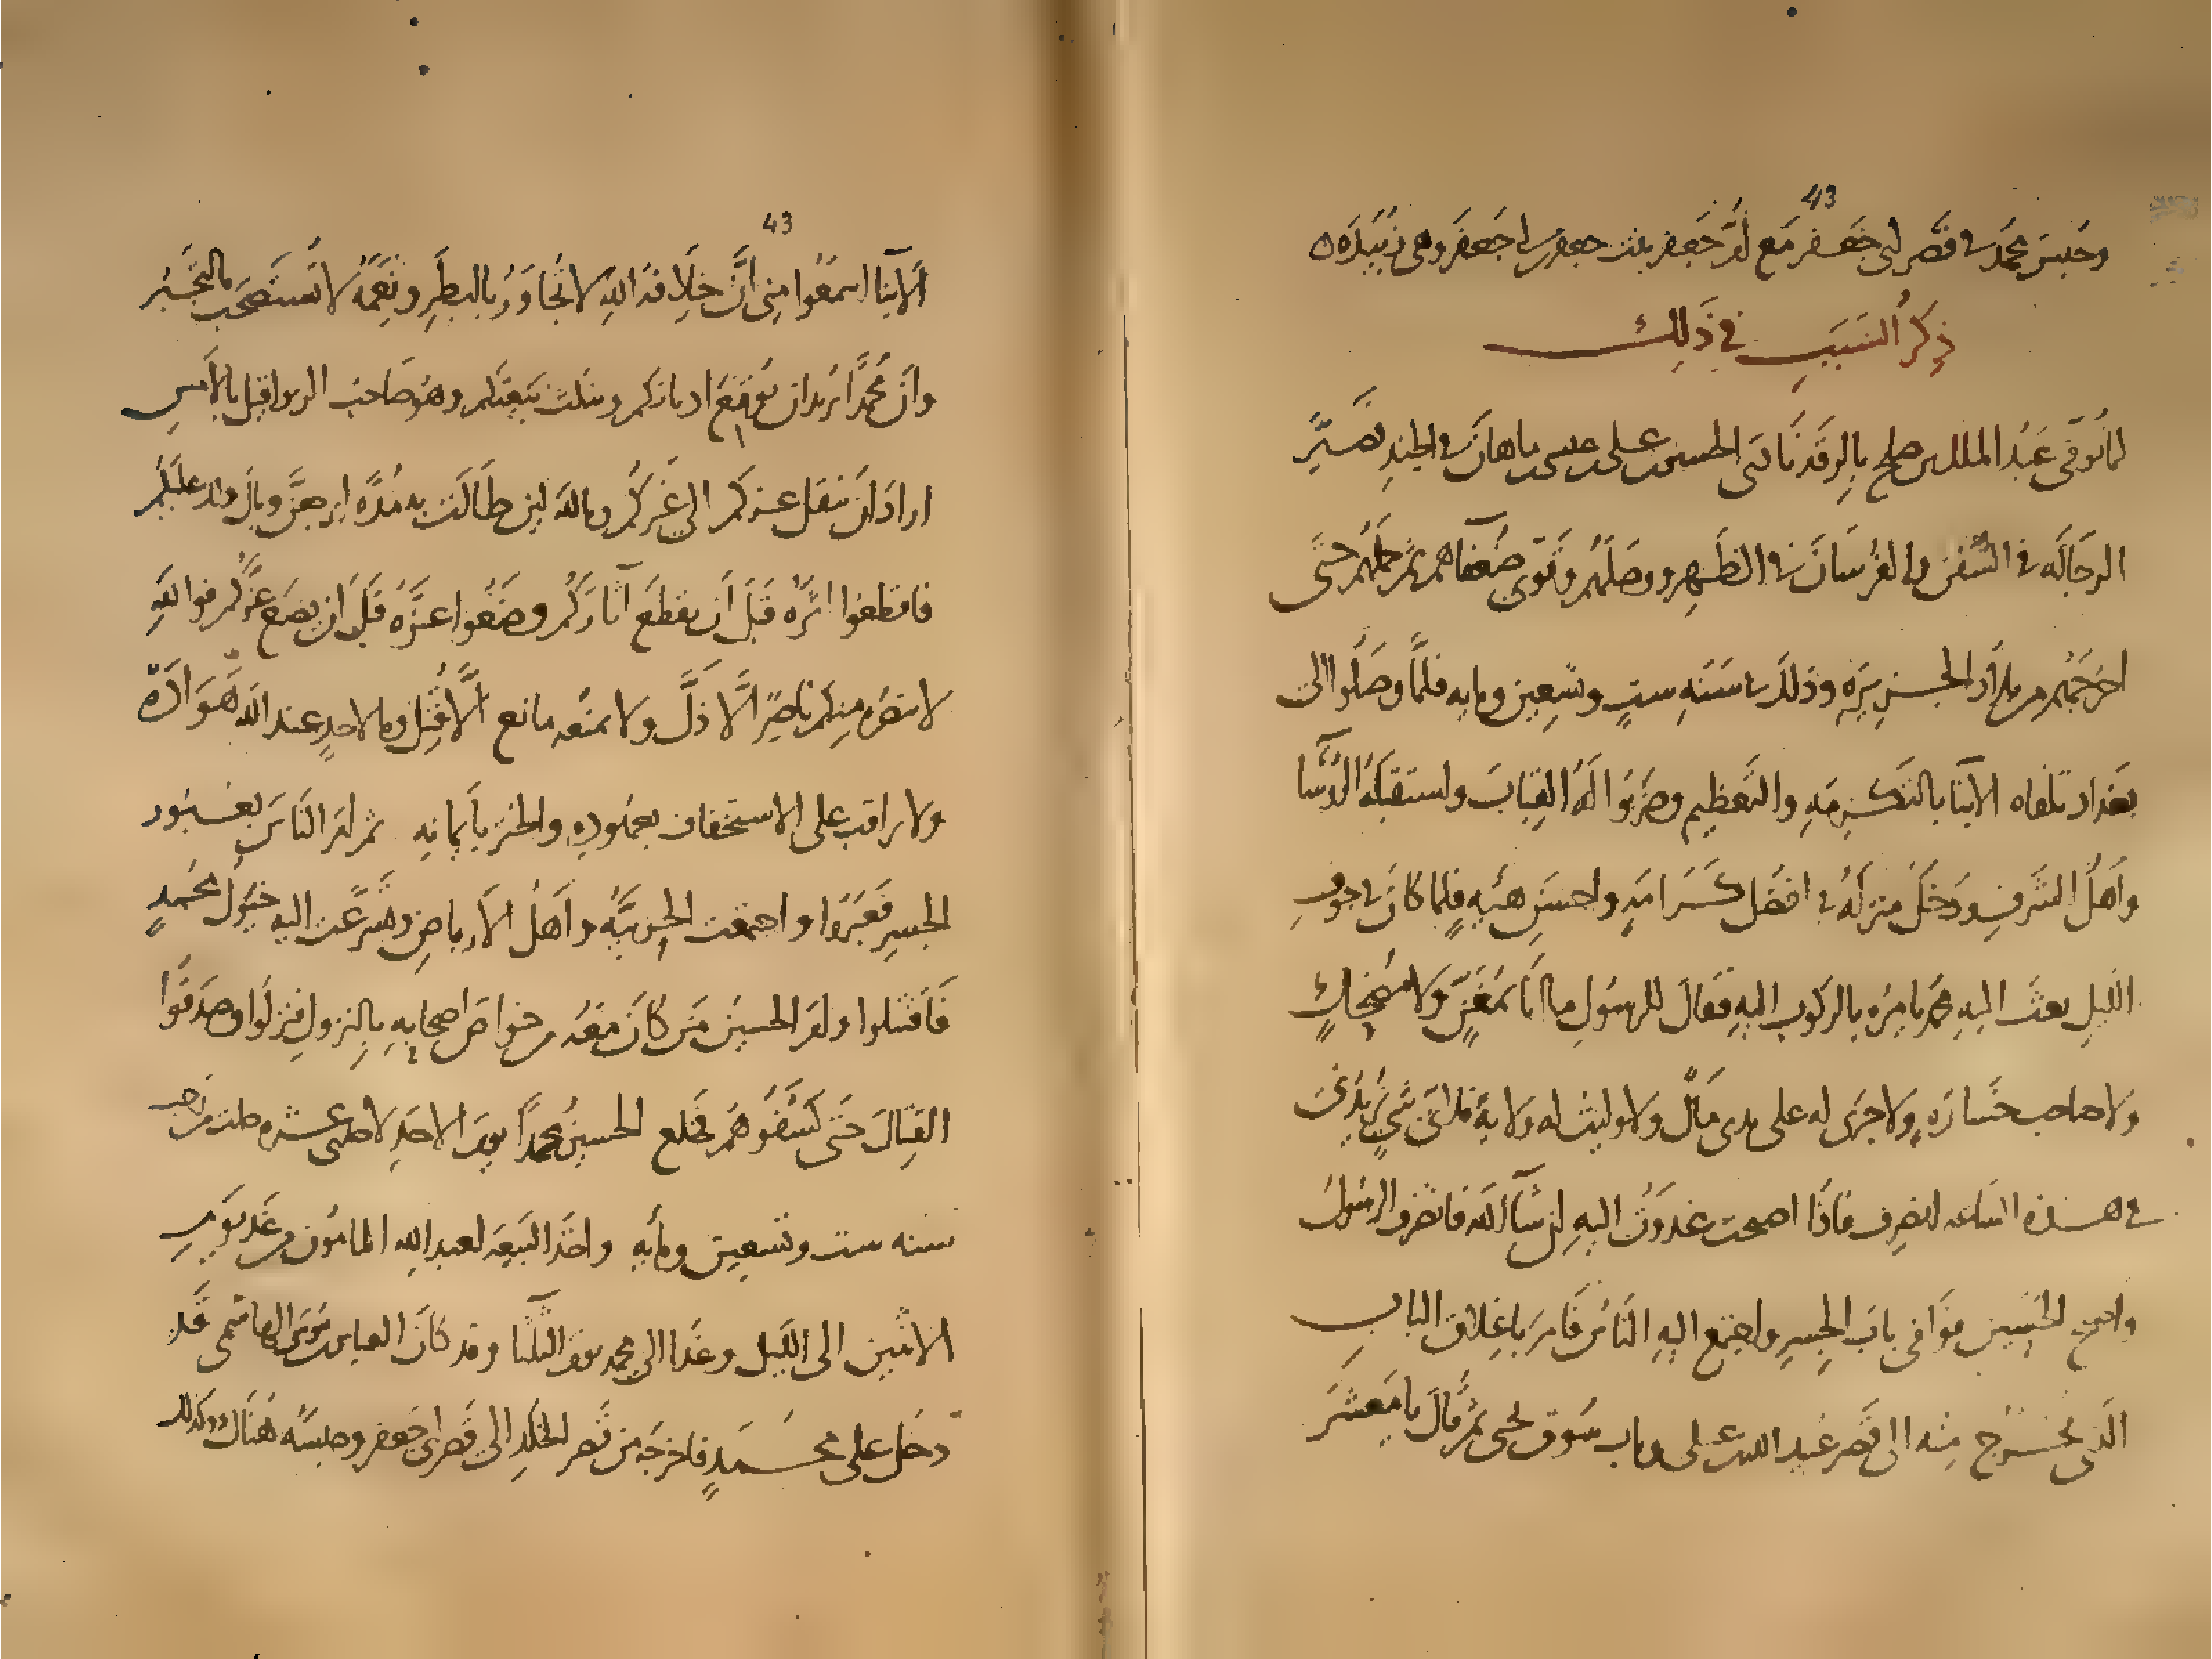 43
وحُبِسَ محمّد فى قصر ابى جعفر مع امّ جعفر بنت جعفر بن ابى جعفر وهى زُبَيْدَه
ذِكرُ السَبَبِ فى ذَلِك
لمّا تُوفّى عَبْدُ الملك بن صلح بالرقّة نادى الحسين بن على بن عيسى بن ماهان فى الجند فصَيَّر
الرجّاله فى السُفن والفُرسَان فى الظَهر ووصَلَهم وقَوّى ضُعَفاهم ثم حملهم حتّى
اخرَجَهُم من بلاد الجزيرَةِ وذلك فى سَنَه ستٍّ وتسعين ومايه فلمّا وصَلُوا الى
بغداد تلقاه الابنَا بالتكرمَهِ والتَعظيم وضربُوا لَهُ القِبَابَ واستقبَلَهُ الرُؤسَا
وأهلُ الشَرفِ ودَخَلَ منزلَهُ فى افضَل كَرَامَةٍ واحسَنِ هَيَةٍ فلمّا كانَ فى جوفِ
اللَيلِ بعَثَ اليهِ محمّد يامرُه بالركوبِ اليهِ فقَالَ للرسُولِ ما انَا بمُغَنٍّ وَلا مُضْحِكٍ
ولا صاحب خَسَارَةٍ ولا جرَى له على يدى مَالٌ ولا وليتُ له ولايةً فلاىّ شىٍ يُريدُنى
فى هذه السَاعه انصرِف فاذَا اصبحت غدَوْتُ اليهِ ان شآ اللَه فانصَرف الرسُولُ
واصبح الحُسَين فوَافى بابَ الجِسرِ واجتمَع اليهِ النَاسُ فَامرَ باغِلاق البابِ
الَذى يخرُج منه الى قَصر عُبَيد الله بن على وباب سُوق يحيى ثُمَّ قالَ يا مَعشَرَ
43
الابنا اسمَعُوا مِنى انَّ خِلَافَة اللهِ لا تُجاوَرُ بالبَطَرِ ونِعَمَهُ لا تُستَصْحَب بالتَجَبُّر
وانّ مُحمّدًا يُريد ان يُوتغ اديانكم وينكث بيعتكم وهُو صَاحب الزواقيل بالأمسِ
ارادَ أن ينقل عزكم الى غَيركُم وبالله لين طَالَت به مُدَّه ليرجعَنَّ وبالُ ذلك عليكم
فاقطعوُا اثَرَه قَبلَ أن يقطعَ آثاركُم وضَعُوا عِزَّه قبل ان يضَع عزَّكم فوالله
لا ينصُره منكم ناصِرٌ الَّا ذلَّ ولا يمنَعُه مانع الَّا قُتِل وما لاحدٍ عند الله هَوَادَة
ولا يراقب على الاستخفاف بعهُودِهِ والحنث بأيمانه ثم امر النَاسَ بعُبُور
الجسرِ فَعَبَرُوا واجتمعت الحربيَّه واهَلُ الارباض وتَسَرّعَت اليه خيُولُ مُحَمدٍ
فَاقتتلوا وامَر الحسين مَن كانَ معَهُ من خواصّ اصحابِهِ بِالنزول فنزلُوا وصدَقُوا
القتالَ حَتّى كَشَفوهُم فخلع الحسين مُحمدًا يومَ الاحَد لاحدى عشره خلت من رجب
سنه ست وتسعين ومأيه واخَذ البَيعَه لعبد الله المامُون من غَد يَومِه
الاثنين الى اللَيل وغدَا الى محمد يوم الثلثَا وقد كان العباس بن مُوسَى الهاشمى قَد
دخَل على محمَدٍ فاخرجَه من قَصر الخُلدِ الى قَصر ابى جعفر وحبسَه هُنَاك وكذلك